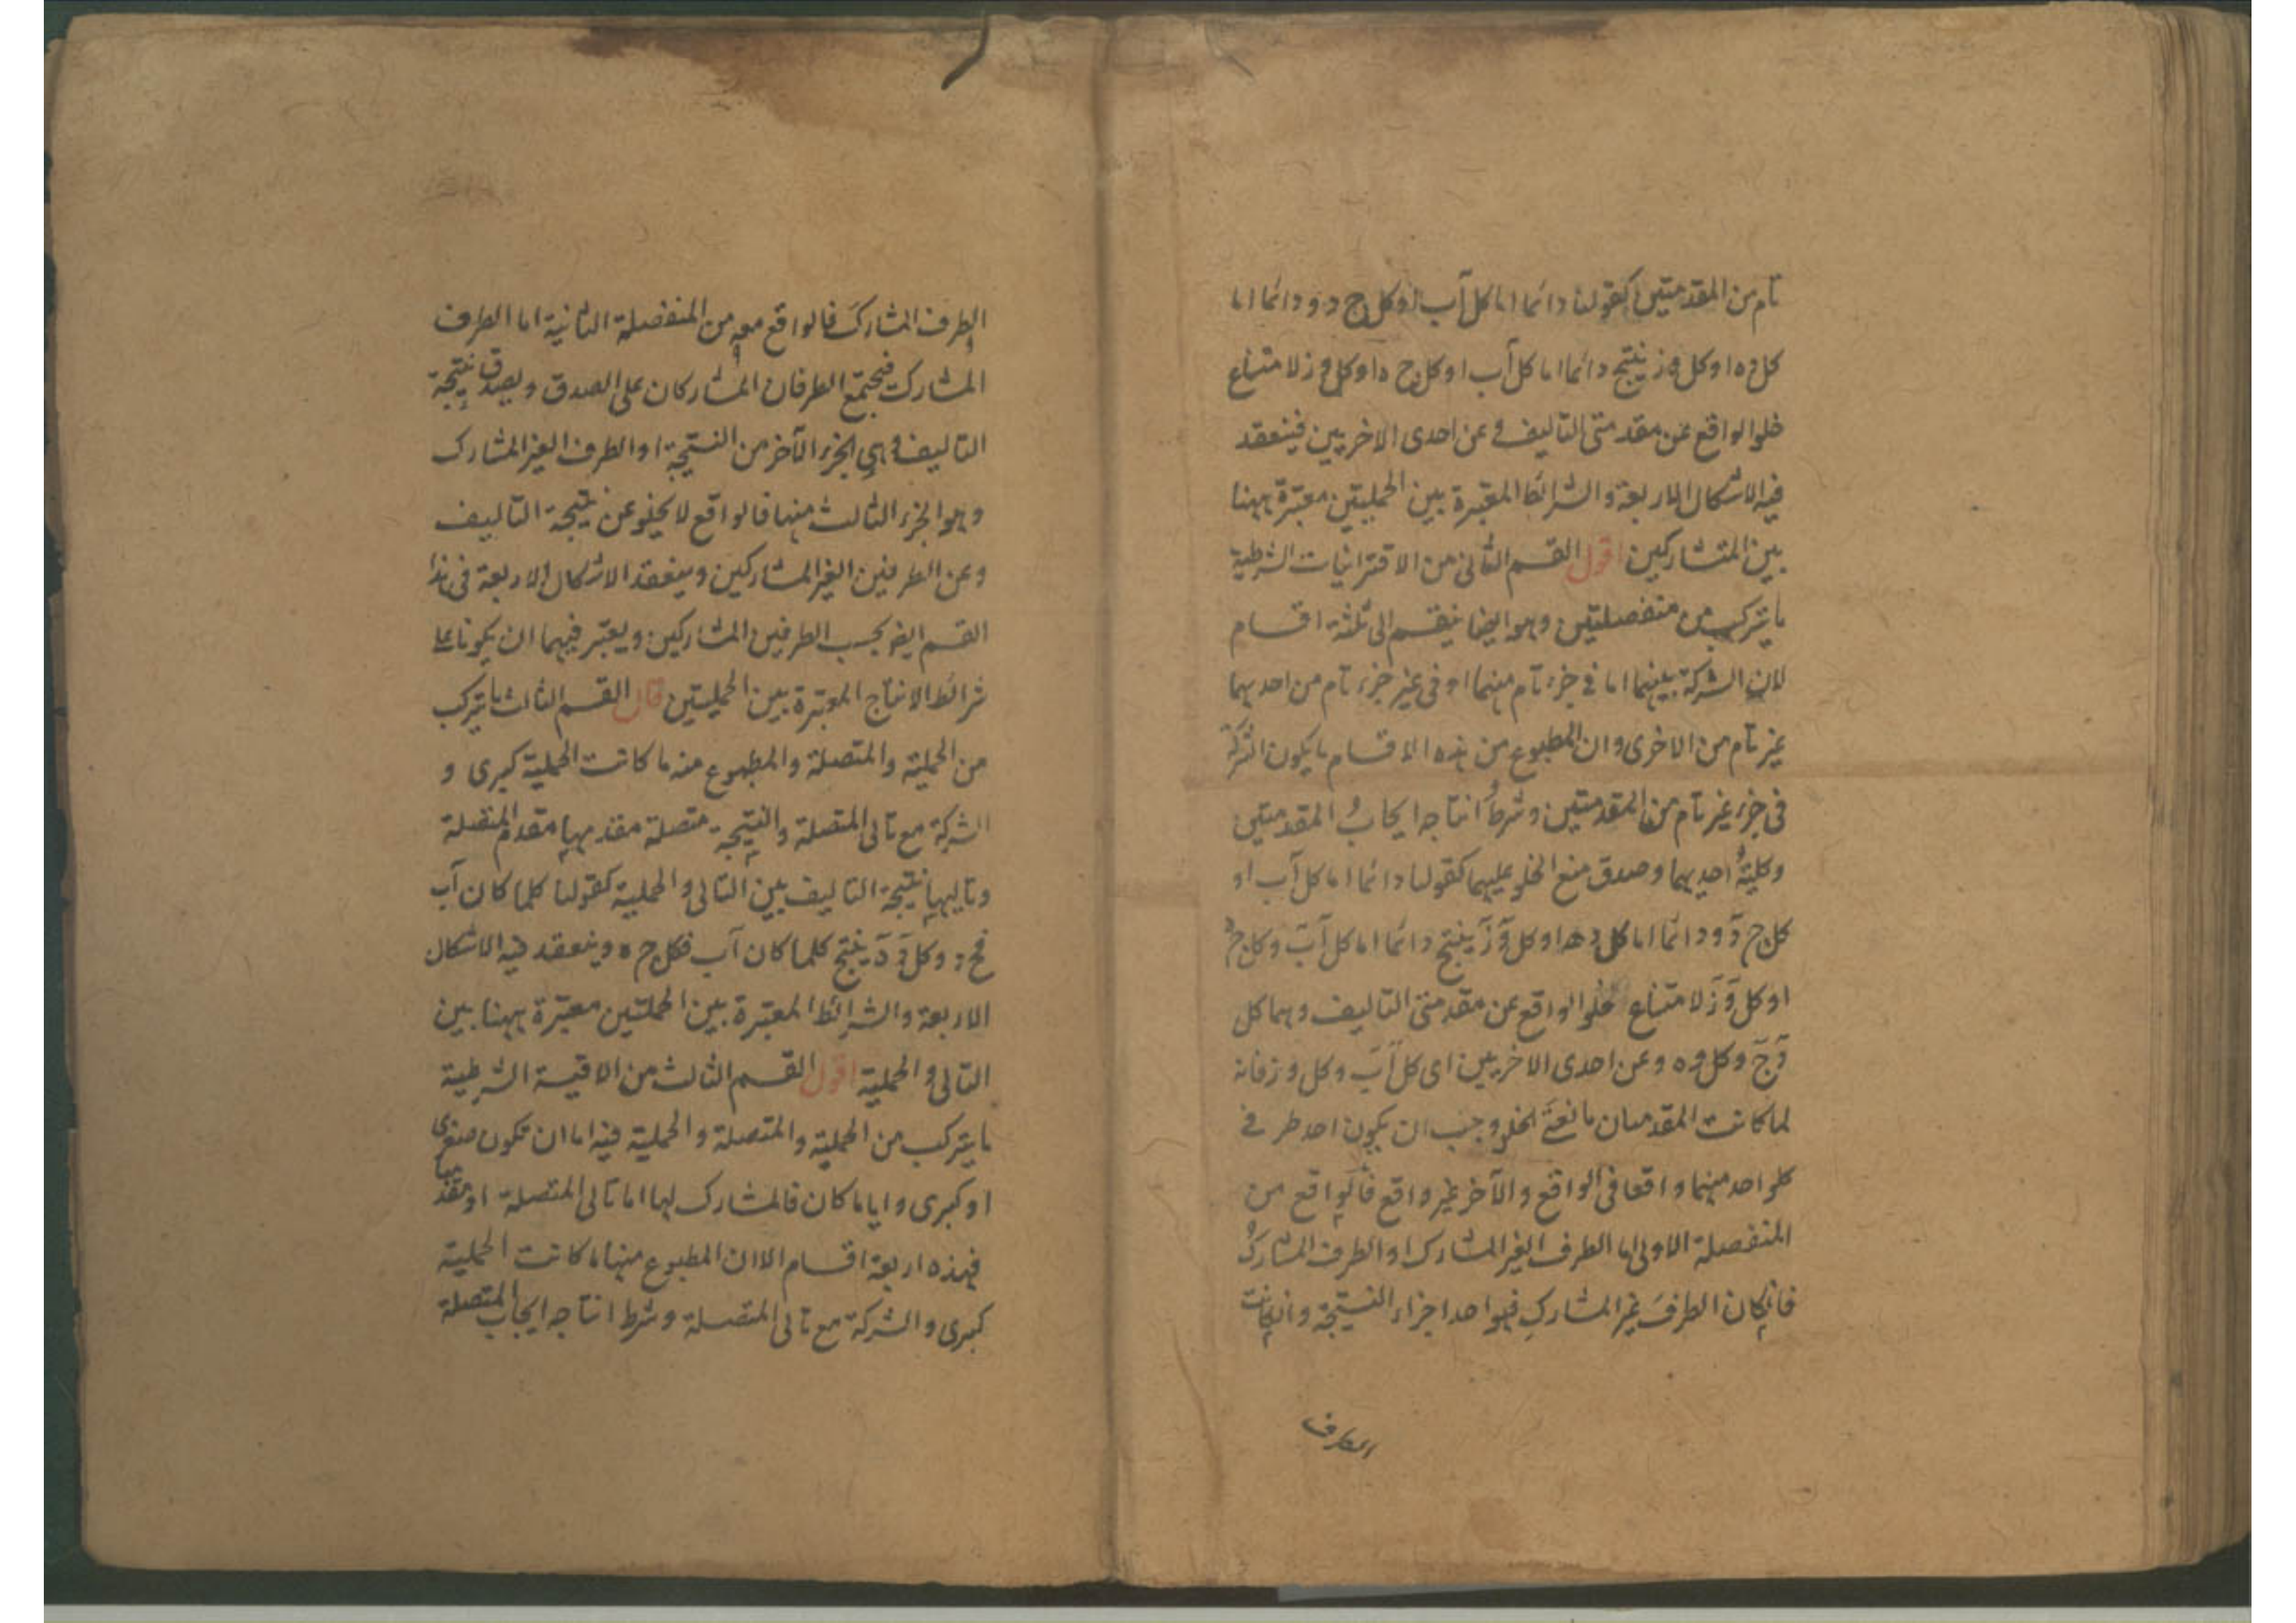 تام من المقدمتين كقولنا دائما اما كل آب او كل ج د و دائما اما
كل د ه او كل و ز ينتج دائما اما كل آب او كل ج ه او كل و ز لامتناع
خلو الواقع عن مقدمتى التاليف و عن احدى الاخريين فينعقد
فيه الاشكال الاربعة و الشرائط المعتبرة بين الحمليتين معتبرة ههنا
بين المتشاركين اقول القسم الثانى من الاقترانيات الشرطية
ما يتركب من منفصلتين وهو ايضا ينقسم الى ثلثة اقسام
لان الشركة بينهما اما فى جزء تام منهما او فى غير جزء تام من احديهما
غير تام من الاخرى وان المطبوع من هذه الاقسام ما يكون الشركة
فى جزء غير تام من المقدمتين و شرط انتاجه ايجاب المقدمتين
و كلية احديهما و صدق منع الخلو عليهما كقولنا دائما اما كل آب او
كل ج د و دائما اما كل د ه او كل و ز ينتج دائما اما كل آب و كل ج ه
او كل و ز لامتناع خلو الواقع عن مقدمتى التاليف و هما كل
د ج و كل و ه و عن احدى الاخريين اى كل آب و كل و ز فانه
لما كانت المقدمتان مانعة الخلو وجب ان يكون احد طرفى
كلواحد منهما واقعا فى الواقع و الآخر غير واقع فالواقع من
المنفصلة الاولى اما الطرف الغير المشارك او الطرف المشارك
فانكان الطرف غير المشارك فهو احد اجزاء النتيجة و انكانت
الطرف
الطرف المشارك فالواقع معه من المنفصلة الثانية اما الطرف
المشارك فيجتمع الطرفان المشاركان على الصدق و يصدق نتيجة
التاليف و هى الجزء الآخر من النتيجة او الطرف الغير المشارك
وهو الجزء الثالث منها فالواقع لا يخلو عن نتيجة التاليف
و عن الطرفين الغير المشاركين و ينعقد الاشكال الاربعة فى هذا
القسم ايض بحسب الطرفين المشاركين و يعتبر فيهما ان يكونا على
شرائط الانتاج المعتبرة بين الحمليتين قال القسم الثالث ما يتركب
من الحملية و المتصلة و المطبوع منه ما كانت الحملية كبرى و
الشركة مع تالى المتصلة و النتيجة متصلة مقدمها مقدم المتصلة
و تاليها نتيجة التاليف بين التالى و الحملية كقولنا كلما كان آب
فج د و كل د ه ينتج كلما كان آب فكل ج ه و ينعقد فيه الاشكال
الاربعة و الشرائط المعتبرة بين الحمليتين معتبرة ههنا بين
التالى و الحملية اقول القسم الثالث من الاقيسة الشرطية
ما يتركب من الحملية و المتصلة و الحملية فيه اما ان تكون صغرى
او كبرى و اياما كان فالمشارك لها اما تالى المتصلة او مقدمها
فهذه اربعة اقسام الا ان المطبوع منها ما كانت الحملية
كبرى و الشركة مع تالى المتصلة و شرط انتاجه ايجاب المتصلة